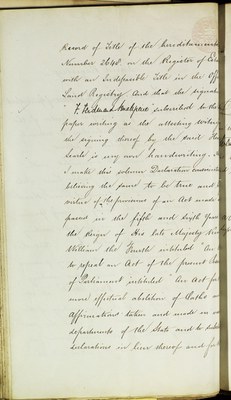 Record of Title of the hereditaments
Number 2648 in the Register of Estates
with an Indefeasible Title in the Office
Land Registry And that the signature
" F. Makepeace " subscribed to the
paper writing as the attesting witness
the signing thereof by the said
is my own handwriting. And
I make this solemn Declaration conscientiously
believing the same to be true and by
virtue of the provisions of an Act made and
passed in the fifth and sixth Year
the Reign of His late Majesty King
William the Fourth intituled " An Act
to repeal an Act of the present Session
of Parliament intituled " An Act for
more effectual abolition of Oaths and
Affirmations taken and made in various
departments of the State and to substitute
declarations in lieu thereof and for